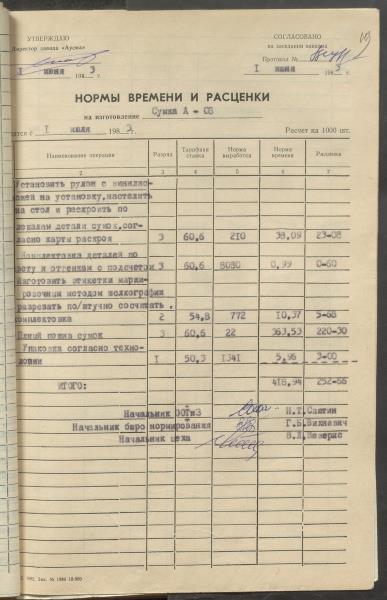 УТВЕРЖДАЮ
Директор завода «Аусма»
1 июня 1983 г.
СОГЛАСОВАНО
на заседании завкома
Протокол №
1 июня 1983 г.
НОРМЫ ВРЕМЕНИ И РАСЦЕНКИ
на изготовление Сумка А - 08
1 июля 1983 г. Расчет на 1000 шт.
Наименование операции Разряд Тарифная ставка Норма выработки Норма времени Расценка
2 3 4 5 6 7
Установить рулон с винилис-
кожей на установку, настелить
на стол и раскроить по
лекалам детали сумок, сог-
ласно карты раскроя 3 60,6 210 38,09 23-08
Комплектовка деталей по
цвету и оттенкам с подсчетом 3 60,6 8080 0,99 0-60
Изготовить этикетки марки-
ровочным методом шелкографии
разрезать по/штучно сосчитать,
комплектовка 2 54,8 772 10,37 5-68
Полный пошив сумок 3 60,6 22 363,53 220-30
Упаковка согласно техно-
логии 1 50,3 1341 5,96 3-00
ИТОГО: 418,94 252-66
Начальник ООТиЗ Н.Т.
Начальник бюро нормирования Г.Б.
Начальник цеха В.Л.